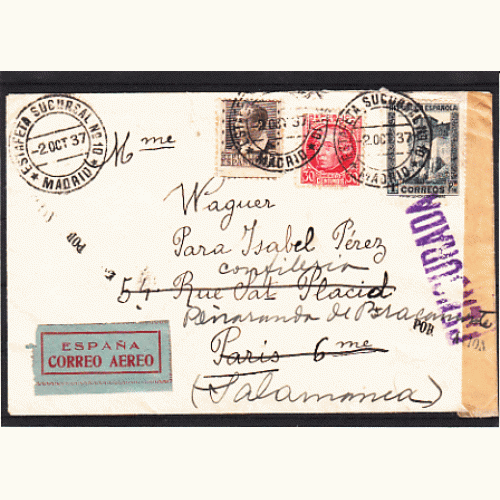 ESTAFETA SUCURSAL Nº 10
-2 OCT 37
MADRID
-2 OCT 37
MADRID
ESTAFETA SUCURSAL Nº 10
-2 OCT 37
MADRID
ESPAÑOLA
30
CENTIMOS
1
CORREOS
Mme
Waguer
Para Isabel Pérez
confiteria
54 Rue Sat Placid
Peñaranda de Bracamonte
Paris 6 me
(Salamanca)
POR
POR
ESPAÑA
CORREO AEREO